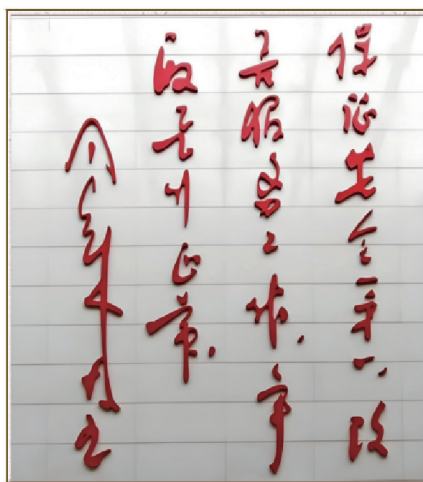 保证安全第一、改
善服务工作、争
取飞行正常。